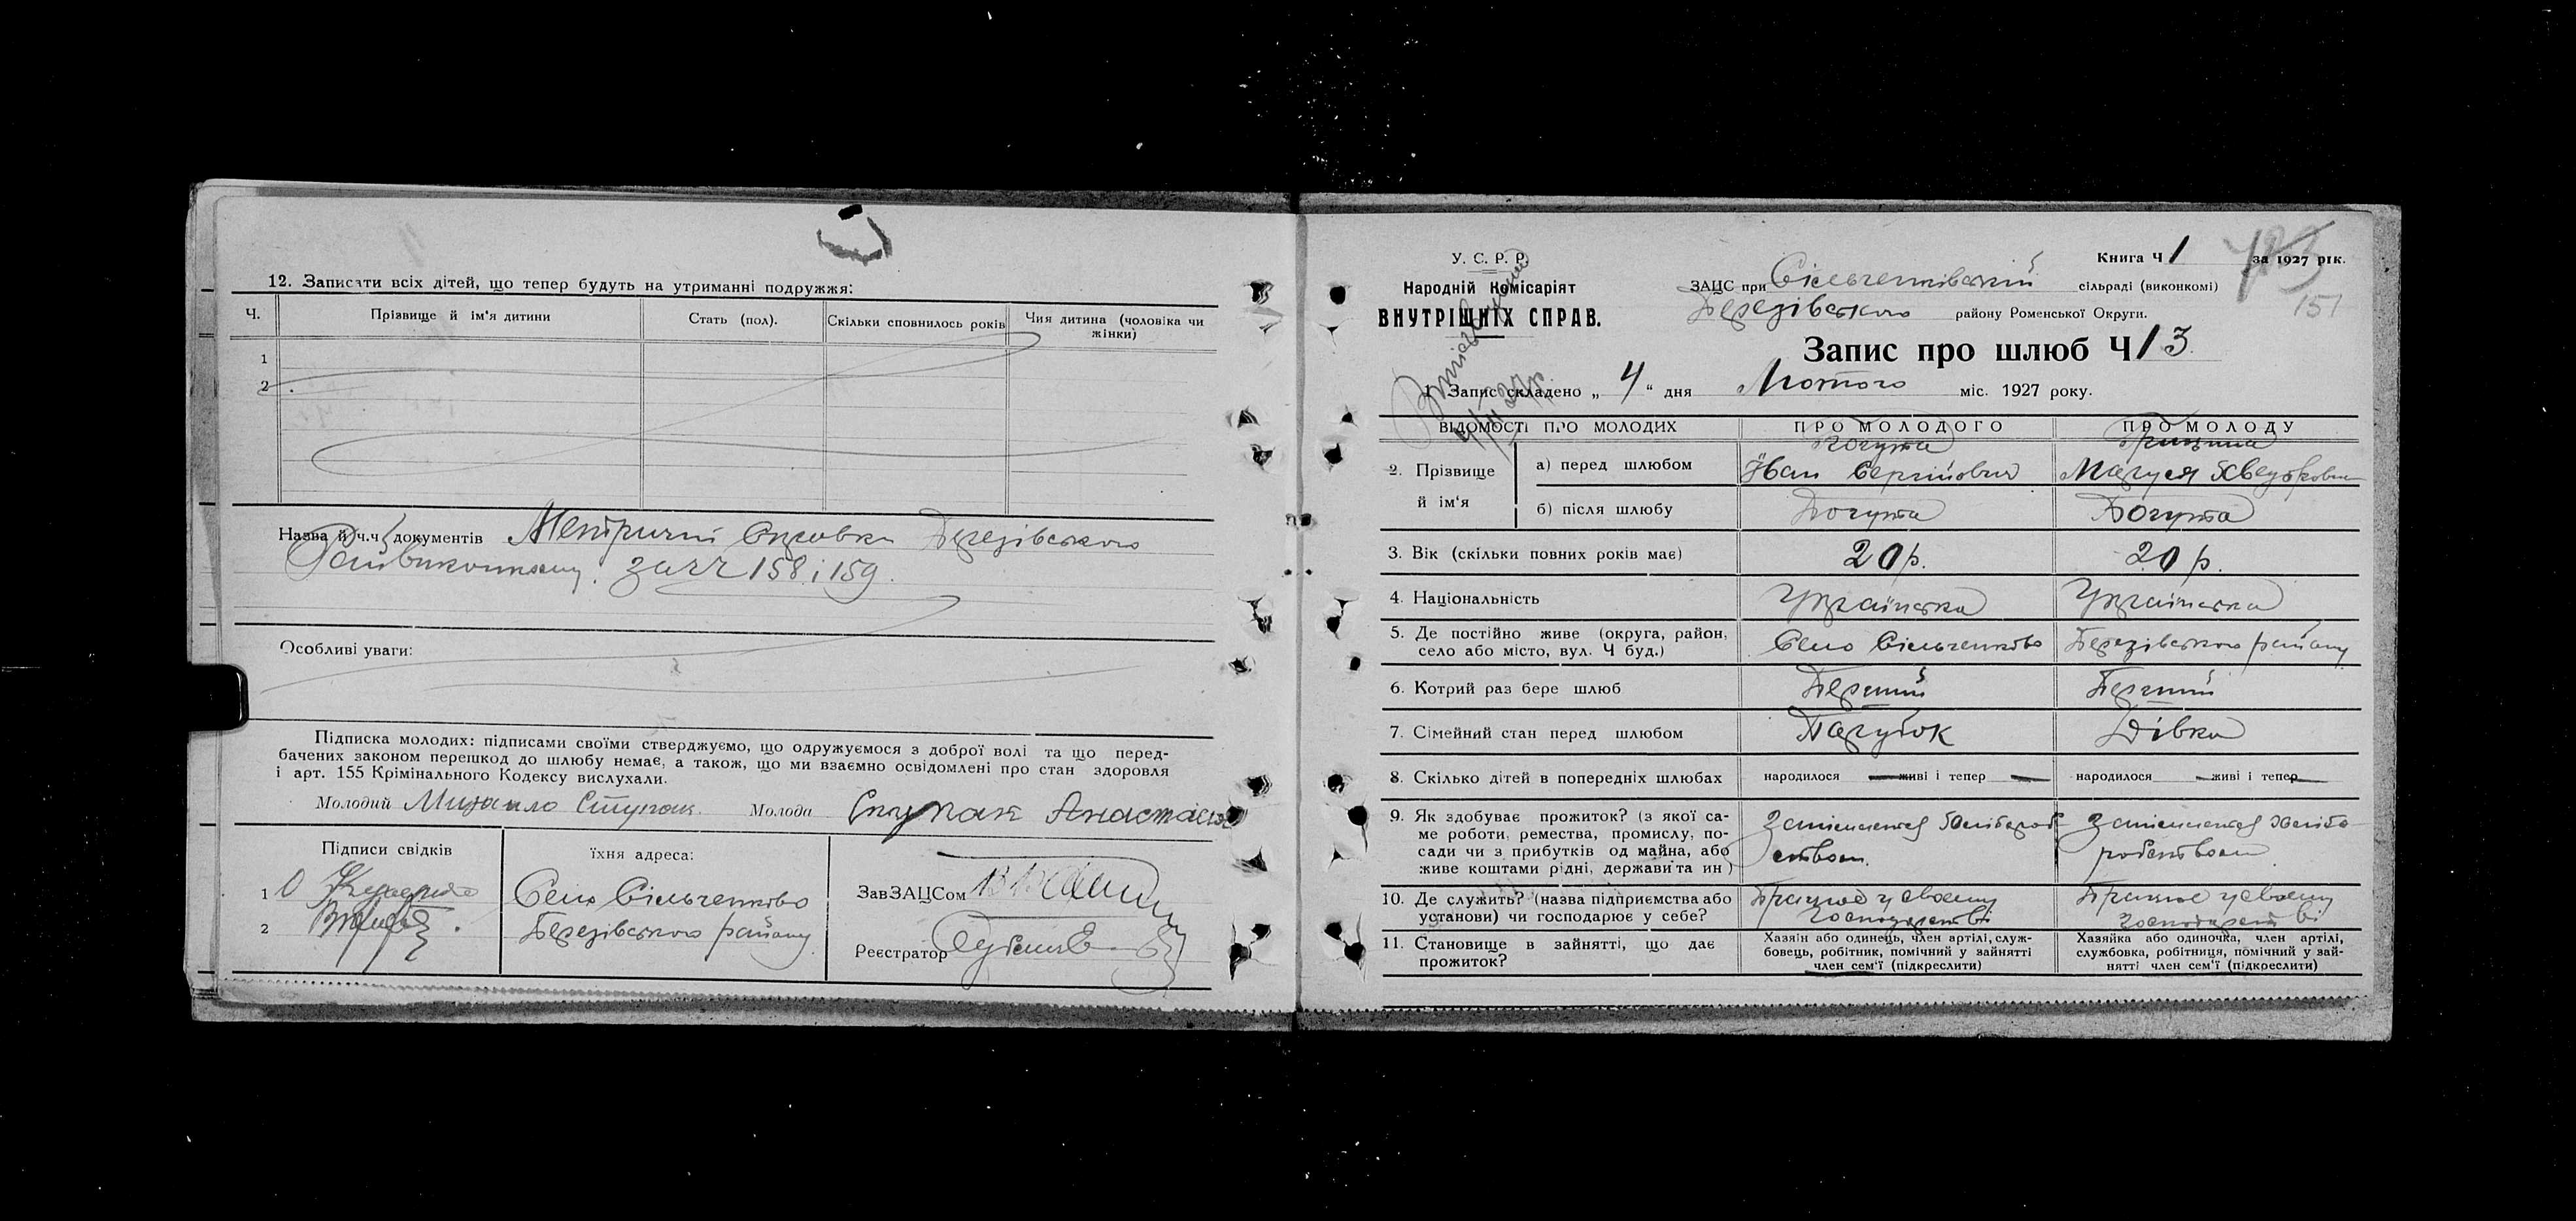 12. Записати всіх дітей, що тепер будуть на утриманні подружжя:
Ч.
Прізвище й ім'я дитини
Стать (пол).
Скільки сповнилось років
Чия дитина (чоловіка чи
жінки)
1
2
Назва й ч.ч. документів Метричні Справки Березівського
Райвиконкому за чч 158 і 159.
Особливі уваги:
Підписка молодих: підписами своїми стверджуємо, що одружуємося з доброї волі та що перед-
бачених законом перешкод до шлюбу немає, а також, що ми взаємно освідомлені про стан здоровля
і арт. 155 Крімінального Кодексу вислухали.
Молодий Михайло Ступак Молода Ступак Анастасія
Підписи свідків
їхня адреса:
1
Село Сільченково
2
Березівського району
ЗавЗАЦСом
Реєстратор
У. С. Р. Р.
Народній Комісаріят
ВНУТРІШНІХ СПРАВ.
Книга Ч 1 за 1927 рік.
151
ЗАЦС при Сільченківській сільраді (виконкомі)
Березівського району Роменської Округи.
Запис про шлюб Ч 13
1 Запис складено „ 4 “ дня Лютого міс. 1927 року.
ВІДОМОСТІ ПРО МОЛОДИХ
ПРО МОЛОДОГО
ПРО МОЛОДУ
2. Прізвище
й ім'я
а) перед шлюбом
Іван Сергійович
Маруся
б) після шлюбу
Богута
Богута
3. Вік (скільки повних років має)
20 р.
20 р.
4. Національність
Українська
Українська
5. Де постійно живе (округа, район,
село або місто, вул. Ч буд.)
Село Сільченково
Березівського району
6. Котрий раз бере шлюб
Перший
Перший
7. Сімейний стан перед шлюбом
Парубок
Дівка
8. Скілько дітей в попередніх шлюбах
народилося — живі і тепер —
народилося — живі і тепер —
9. Як здобуває прожиток? (з якої са-
ме роботи, ремества, промислу, по-
сади чи з прибутків од майна, або
живе коштами рідні, держави та ин)
Займається Хлібороб-
ством.
Займається Хлібо-
робством
10. Де служить? (назва підприємства або
установи) чи господарює у себе?
Працює у своєму
господарстві
Працює у своєму
господарстві
11. Становище в зайнятті, що дає
прожиток?
Хазяїн або одинець, член артілі, служ-
бовець, робітник, помічний у зайнятті
член сем'ї (підкреслити)
Хазяйка або одиночка, член артілі,
службовка, робітниця, помічний у зай-
нятті член сем'ї (підкреслити)